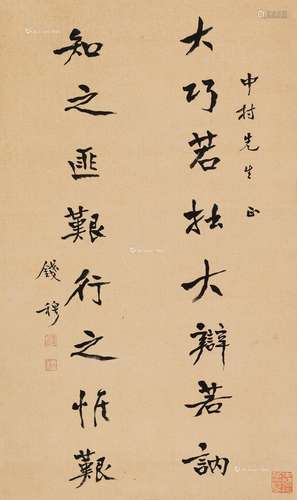 中村先生正
大巧若拙大辯若訥
知之匪艱行之惟艱
錢穆